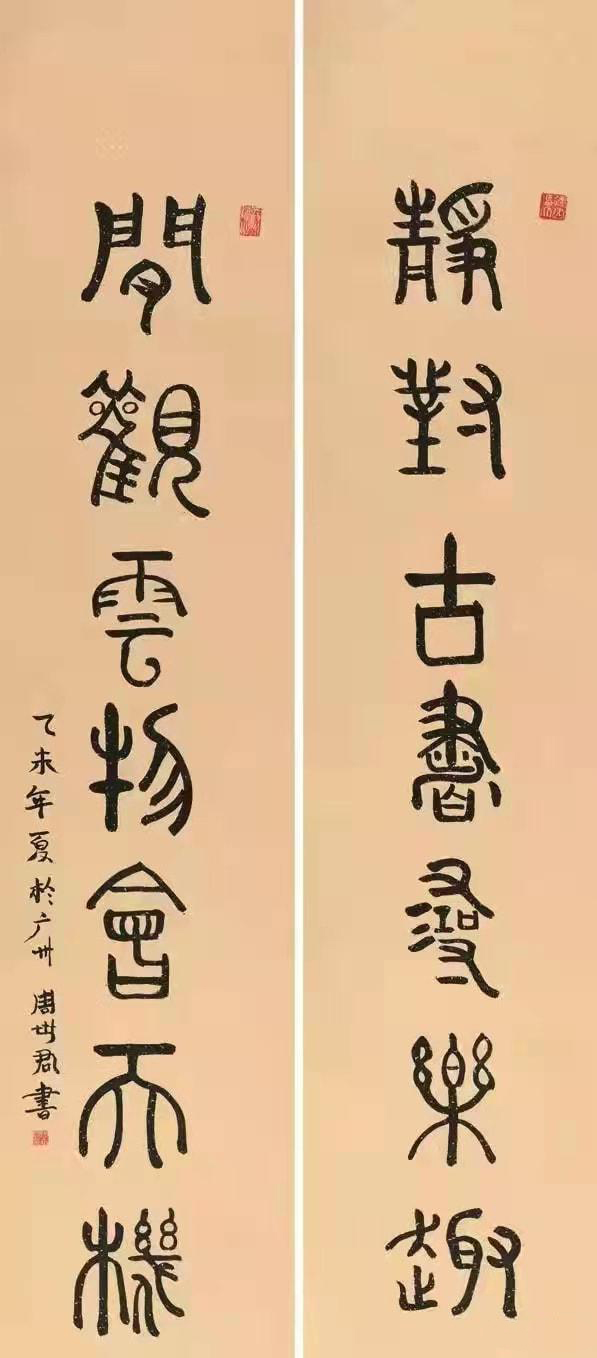 靜對古書尋樂趣
閒觀雲物會天機
乙未年夏於广州 周 君書